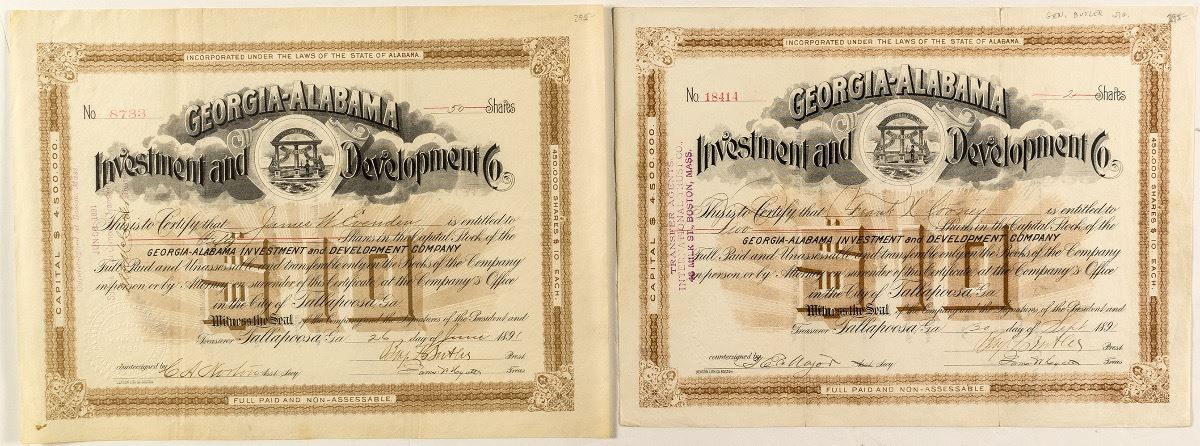 295-
INCORPORATED UNDER THE LAWS OF THE STATE OF ALABAMA.
No. 8733
50 Shares
GEORGIA-ALABAMA
Investment and Development Co.
CAPITAL $4,500,000.
450,000 SHARES $10 EACH.
This is to Certify that James W. Evenden is entitled to
Shares in the Capital Stock of the
GEORGIA-ALABAMA INVESTMENT and DEVELOPMENT COMPANY
Full Paid and Unassessable and transferable only on the Books of the Company
in person or by Attorney on surrender of this Certificate at the Company's Office
in the City of Tallapoosa, Ga.
$10
Witness the Seal of the Company and the Signatures of the President and
Treasurer Tallapoosa, Ga. 26 day of June 1891
Benj F Butler Prest
countersigned by Asst. Secy. Treas
FULL PAID AND NON-ASSESSABLE.
GEN. BUTLER SIG. 295-
INCORPORATED UNDER THE LAWS OF THE STATE OF ALABAMA.
No. 18414
2 Shares
GEORGIA-ALABAMA
Investment and Development Co.
CAPITAL $4,500,000.
450,000 SHARES $10 EACH.
TRANSFER AGENTS.
INTERNATIONAL TRUST CO.,
45 MILK ST., BOSTON, MASS.
This is to Certify that Frank X Cooney is entitled to
Two Shares in the Capital Stock of the
GEORGIA-ALABAMA INVESTMENT and DEVELOPMENT COMPANY
Full Paid and Unassessable and transferable only on the Books of the Company
in person or by Attorney on surrender of this Certificate at the Company's Office
in the City of Tallapoosa, Ga.
$10
Witness the Seal of the Company and the Signatures of the President and
Treasurer Tallapoosa, Ga. 30 day of Sept 1891
Benj F Butler Prest
countersigned by Asst. Secy. Treas
FULL PAID AND NON-ASSESSABLE.